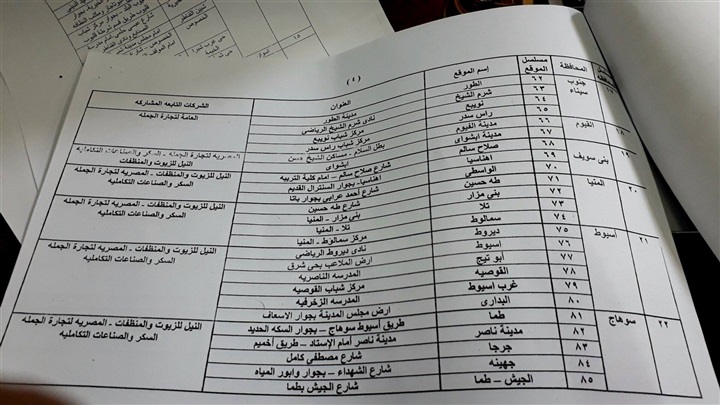 (٤)
المحافظة | مسلسل الموقع | إسم الموقع | العنوان | الشركات التابعه المشاركه
جنوب سيناء | ٦٢ | الطور | مدينة الطور | العامة لتجارة الجمله
٦٣ | شرم الشيخ | نادى شرم الشيخ الرياضى
٦٤ | نويبع | مركز شباب نويبع
٦٥ | راس سدر | مركز شباب راس سدر
١٨ | الفيوم | ٦٦ | مدينة الفيوم | بطل السلام - مساكن الشيخ حسن | المصريه لتجارة الجمله - السكر والصناعات التكامليه
٦٧ | مدينة ابشواى | ابشواى
١٩ | بنى سويف | ٦٨ | صلاح سالم | شارع صلاح سالم - امام كلية التربيه | النيل للزيوت والمنظفات - المصريه لتجارة الجمله
٦٩ | اهناسيا | اهناسيا- بجوار السنترال القديم | السكر والصناعات التكامليه
٧٠ | الواسطي | شارع أحمد عرابي بجوار باتا
٢٠ | المنيا | ٧١ | طه حسين | شارع طه حسين | النيل للزيوت والمنظفات - المصريه لتجارة الجمله
٧٢ | بنى مزار | بنى مزار - المنيا | السكر والصناعات التكامليه
٧٣ | تلا | تلا - المنيا
٧٤ | سمالوط | مركز سمالوط - المنيا
٢١ | اسيوط | ٧٥ | ديروط | نادى ديروط الرياضى | النيل للزيوت والمنظفات - المصريه لتجارة الجمله
٧٦ | اسيوط | ارض الملاعب بحى شرق | السكر والصناعات التكامليه
٧٧ | أبو تيج | المدرسه الناصريه
٧٨ | القوصيه | مركز شباب القوصيه
٧٩ | غرب اسيوط | المدرسه الزخرفيه
٨٠ | البدارى | ارض مجلس المدينة بجوار الاسعاف
٢٢ | سوهاج | ٨١ | طما | طريق أسيوط سوهاج – بجوار السكه الحديد | النيل للزيوت والمنظفات - المصريه لتجارة الجمله
٨٢ | مدينة ناصر | مدينة ناصر أمام الإستاد - طريق أخميم | السكر والصناعات التكامليه
٨٣ | جرجا | شارع مصطفى كامل
٨٤ | جهينه | شارع الشهداء – بجوار وابور المياه
٨٥ | الجيش – طما | شارع الجيش بطما